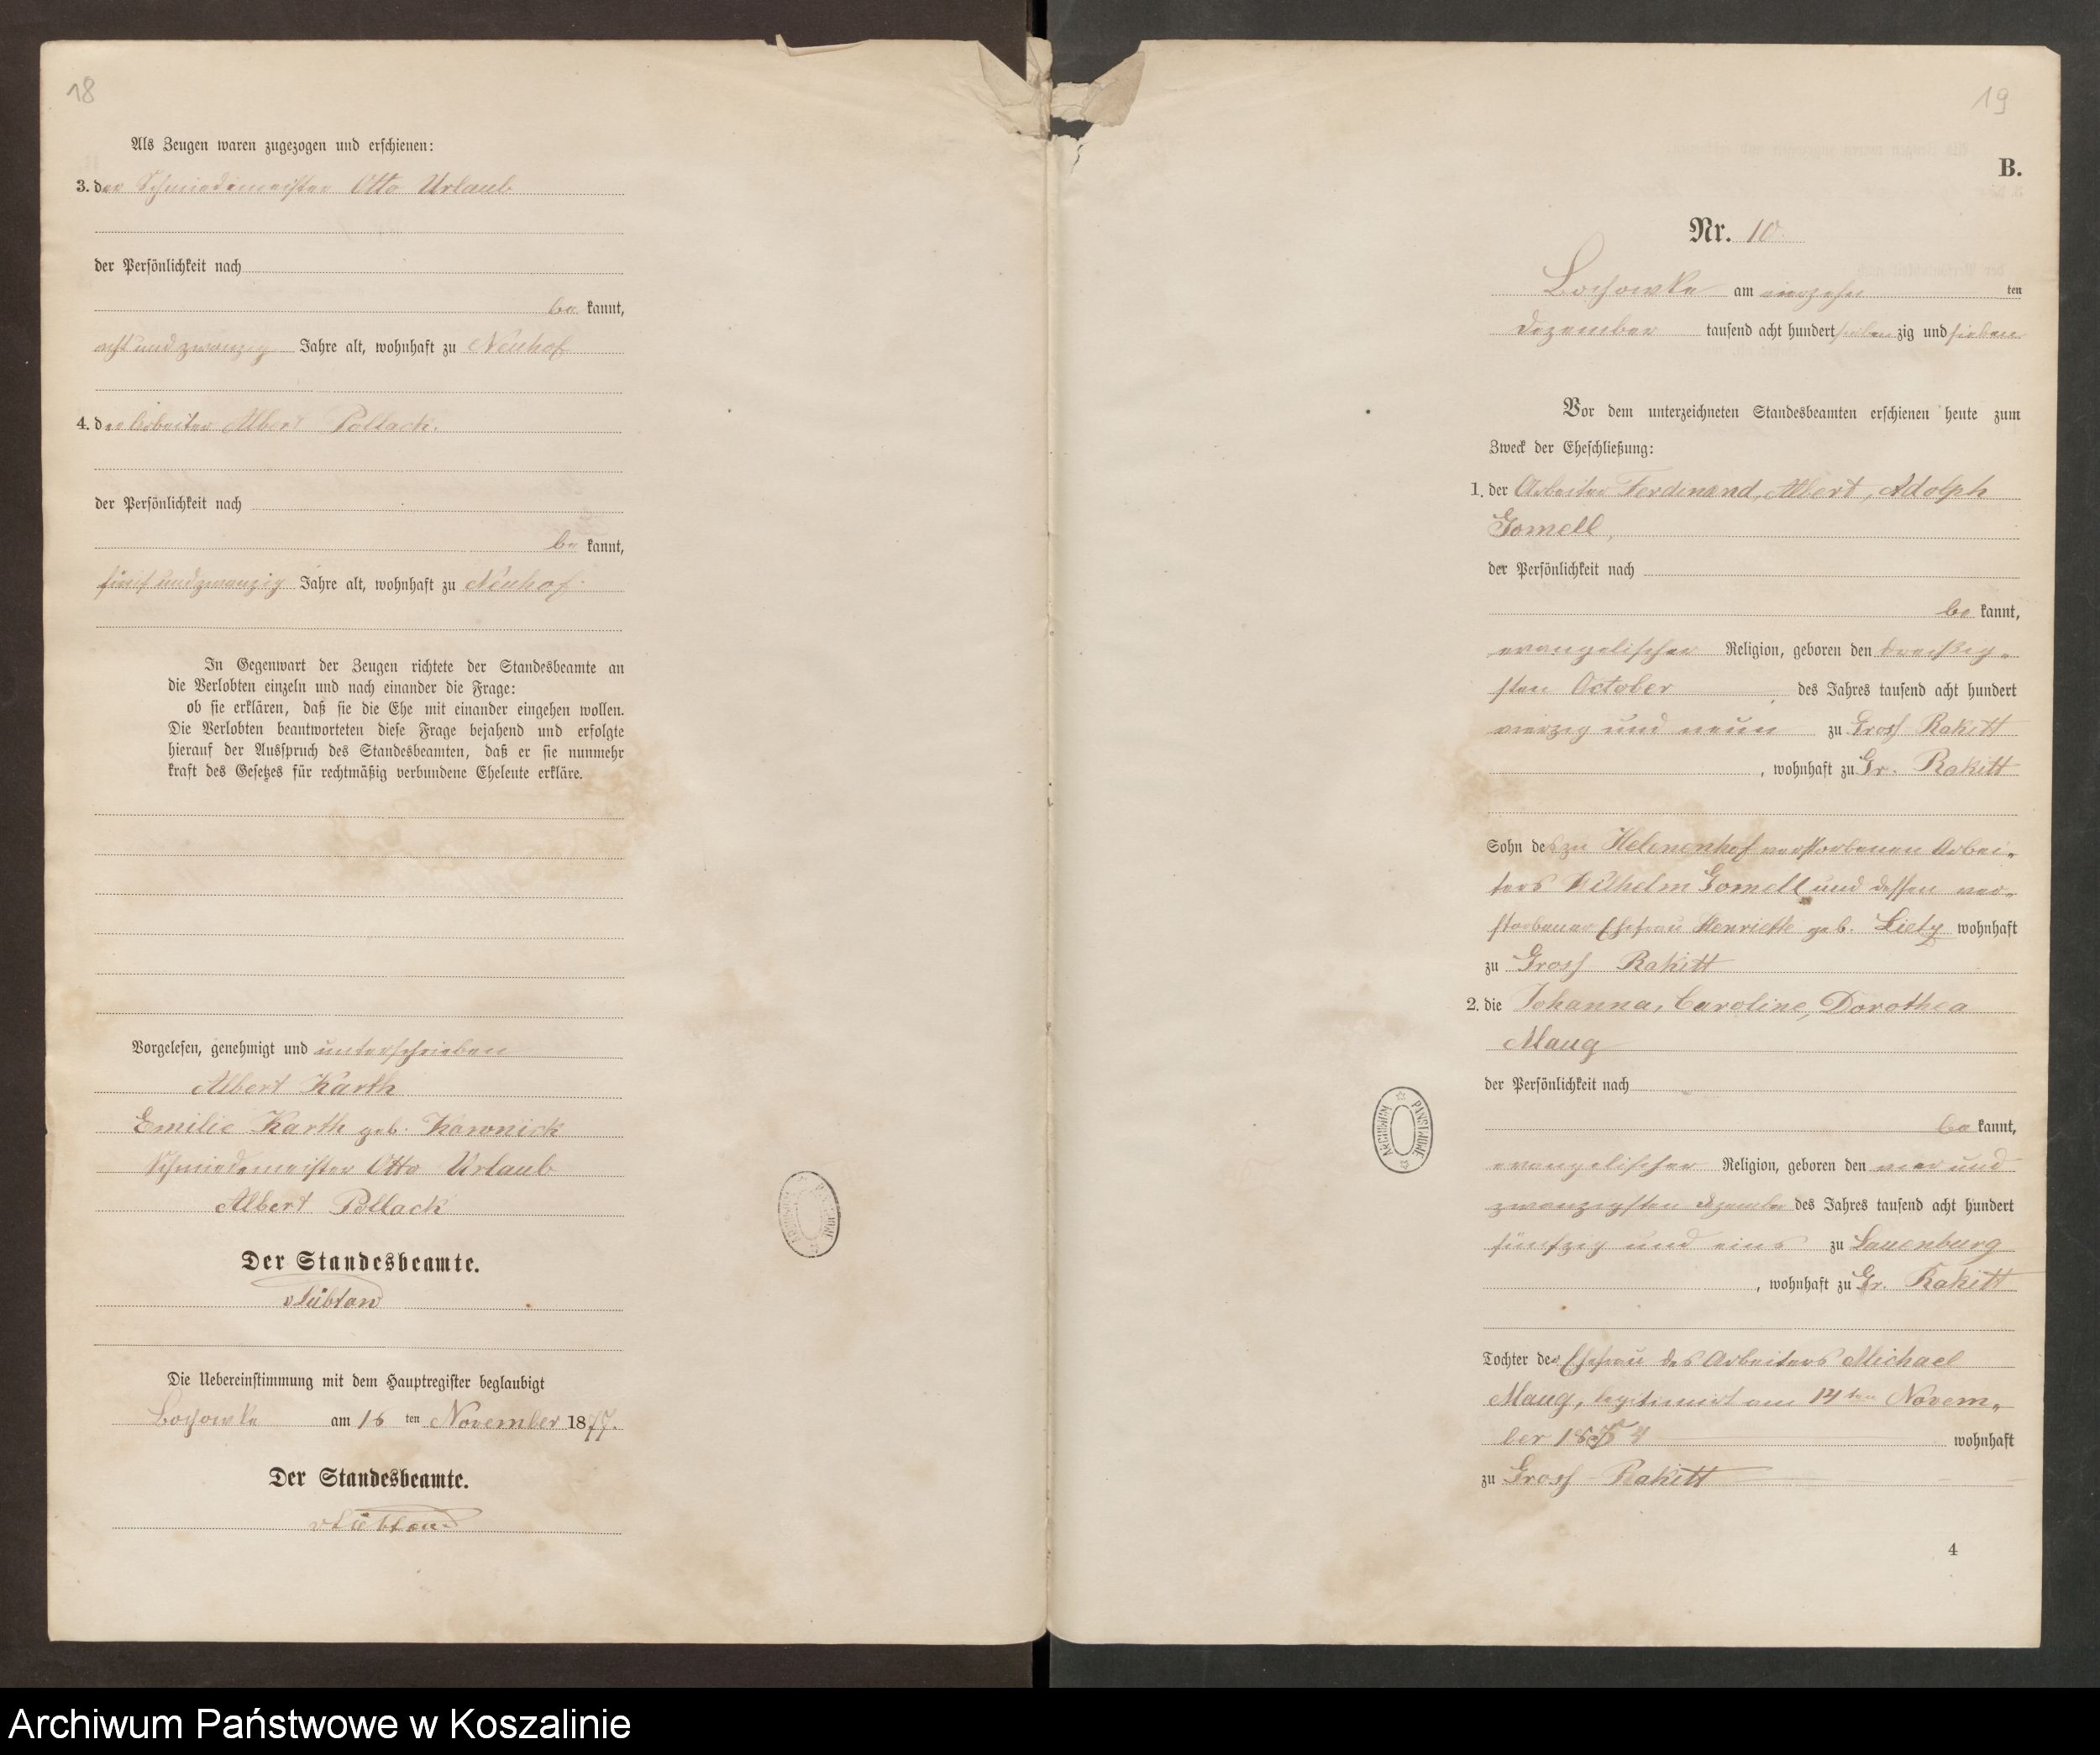 18
Als Zeugen waren zugezogen und erschienen:
3. der Schmiedemeister Otto Urlaub
der Persönlichkeit nach
be kannt,
acht und zwanzig Jahre alt, wohnhaft zu Neuhof
4. der Arbeiter Albert Pollack.
der Persönlichkeit nach
be kannt,
fünf und zwanzig Jahre alt, wohnhaft zu Neuhof.
In Gegenwart der Zeugen richtete der Standesbeamte an
die Verlobten einzeln und nach einander die Frage:
ob sie erklären, daß sie die Ehe mit einander eingehen wollen.
Die Verlobten beantworteten diese Frage bejahend und erfolgte
hierauf der Ausspruch des Standesbeamten, daß er sie nunmehr
kraft des Gesetzes für rechtmäßig verbundene Eheleute erkläre.
Vorgelesen, genehmigt und unterschrieben
Albert Karth
Emilie Karth geb. Kawnick
Schmiedemeister Otto Urlaub
Albert Pollack
Der Standesbeamte.
vLübtow
Die Uebereinstimmung mit dem Hauptregister beglaubigt
Bochowke am 16 ten November 1877.
Der Standesbeamte.
vLübtow
19
B.
Nr. 10.
Bochowke am vierzehn ten
Dezember tausend acht hundert sieben zig und sieben
Vor dem unterzeichneten Standesbeamten erschienen heute zum
Zweck der Eheschließung:
1. der Arbeiter Ferdinand, Albert, Adolph
Gomell,
der Persönlichkeit nach
be kannt,
evangelischer Religion, geboren den dreißig-
sten October des Jahres tausend acht hundert
vierzig und neun zu Gross Rakitt
, wohnhaft zu Gr. Rakitt
Sohn des zu Helenenhof verstorbenen Arbei-
ters Wilhelm Gomell und dessen ver-
storbener Ehefrau Henriette geb. Lietz wohnhaft
zu Gross Rakitt
2. die Johanna, Caroline, Dorothea
Maug
der Persönlichkeit nach
be kannt,
evangelischer Religion, geboren den vier und
zwanzigsten Dezember des Jahres tausend acht hundert
fünfzig und eins zu Lauenburg
, wohnhaft zu Gr. Rakitt
Tochter der Ehefrau des Arbeiters Michael
Maug, legitimirt am 14ten Novem-
ber wohnhaft
zu Gross Rakitt
4
ARCHIWUM PAŃSTWOWE
Archiwum Państwowe w Koszalinie